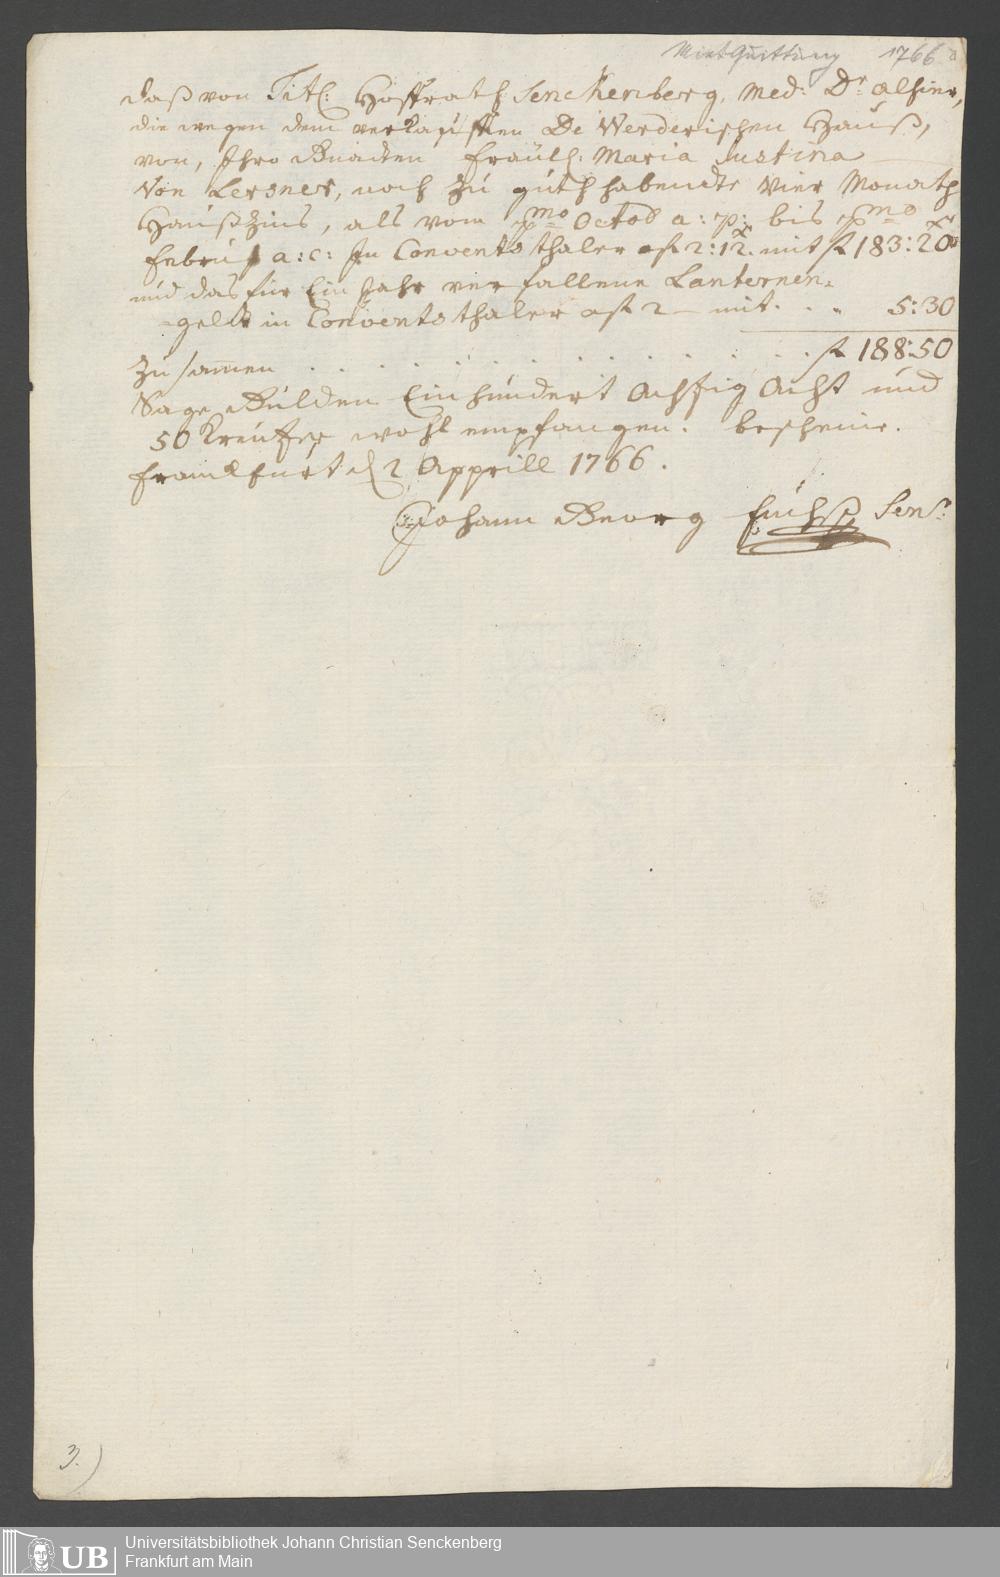 Mietquittung 1766
Daß von Titl: Hoffrath Senckenberg, Med: Dr. alhier,
die wegen dem verkaufften De Werderischen Hauß,
von, Ihro Gnaden Fräul: Maria Justina
Von Lersner, noch zu guth habendte Vier Monath
Haußzinß, als vom pmo Octob a: p: bis pmo
Febru a: c: In Convents thaler a f 2:12x. mit f 183:20 xr
und das für Ein Jahr verfallene Lanternen-
-geldt in Convents thaler a f 2 — mit . . . 5:30
Zusamen . . . . . . . . . . f 188:50
Sage Gulden Einhundert Achtzig Acht und
50 Kreutzer wohl empfangen. bescheine.
Franckfurt d 2 Apprill 1766.
Johann Georg Fuchß Sen:
3.)
UB
Universitätsbibliothek Johann Christian Senckenberg
Frankfurt am Main